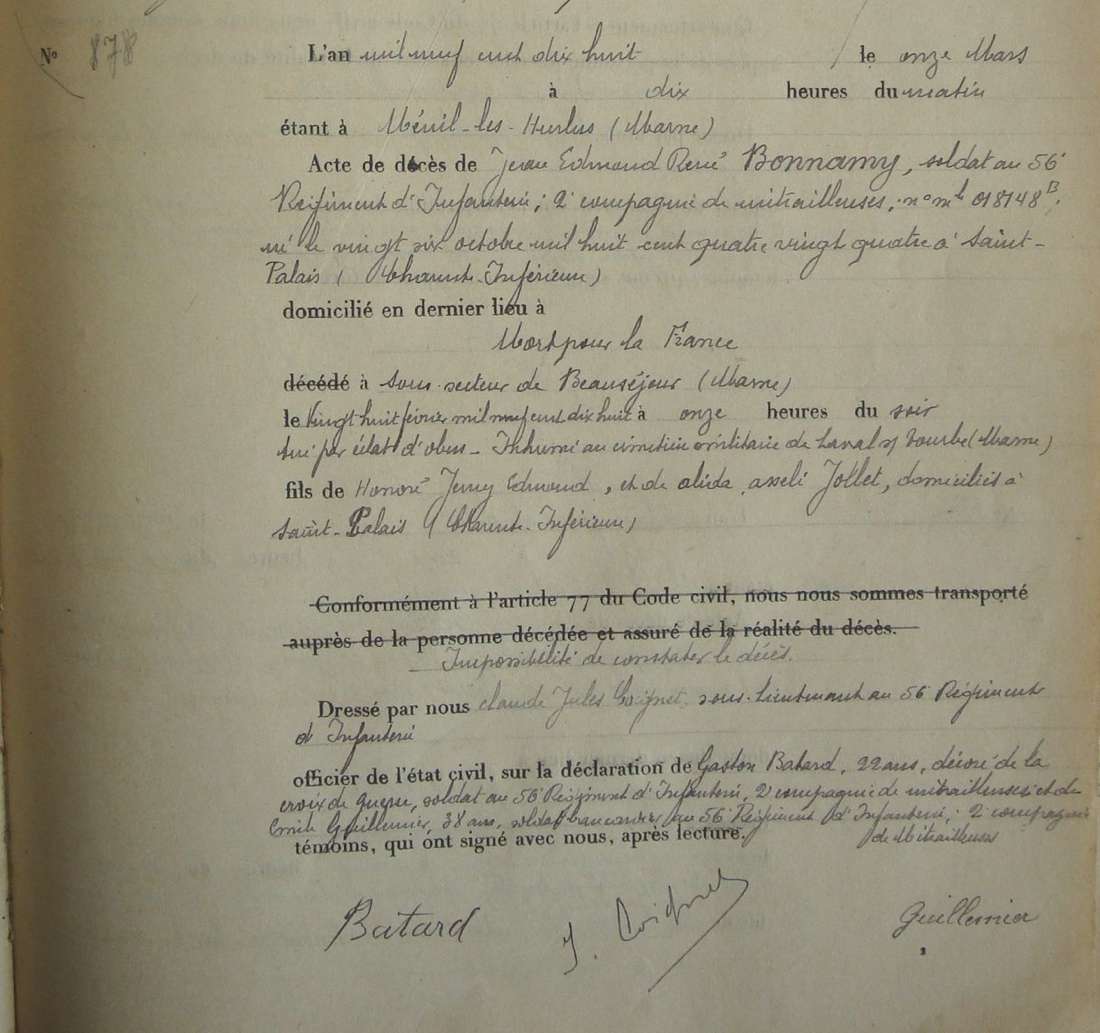 N° 878
L'an mil neuf cent dix huit le onze Mars
à dix heures du matin
étant à Ménil-les-Hurlus (Marne)
Acte de décès de Jean Edmond René Bonnamy, soldat au 56e
Régiment d'Infanterie, 2e compagnie de mitrailleuses, n° mle 018148 B,
né le vingt six octobre mil huit cent quatre vingt quatre à Saint-
Palais (Charente-Inférieure)
domicilié en dernier lieu à
Mort pour la France
décédé à Sous-secteur de Beauséjour (Marne)
le Vingt huit février mil neuf cent dix huit à onze heures du soir
tué par éclat d'obus - Inhumé au cimetière militaire de Laval s/ Tourbe (Marne)
fils de Honoré Edmond, et de Jollet, domiciliés à
Saint-Palais (Charente-Inférieure)
Conformément à l'article 77 du Code civil, nous nous sommes transporté
auprès de la personne décédée et assuré de la réalité du décès.
Impossibilité de constater le décès.
Dressé par nous Claude Jules Coignet, sous-lieutenant au 56e Régiment
d'Infanterie
officier de l'état civil, sur la déclaration de Gaston Batard, 22 ans, décoré de la
croix de guerre, soldat au 56e Régiment d'Infanterie, 2e compagnie de mitrailleuses et de
Emile Guillemier, 38 ans, soldat brancardier au 56e Régiment d'Infanterie, 2e compagnie
de Mitrailleuses
témoins, qui ont signé avec nous, après lecture.
Batard J. Coignet Guillemier